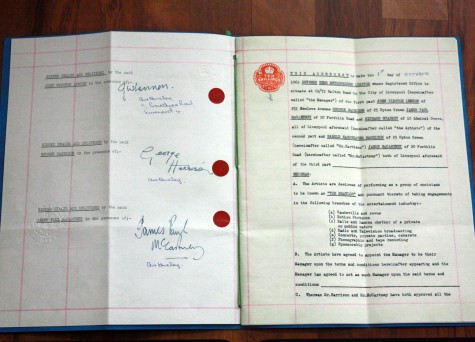 SIGNED SEALED AND DELIVERED by the said
JOHN WINSTON LENNON in the presence of:-
JWLennon.
Liverpool 4
SIGNED SEALED AND DELIVERED by the said
GEORGE HARRISON in the presence of:-
George
Harrison
SIGNED SEALED AND DELIVERED by the said
JAMES PAUL McCARTNEY in the presence of:-
James Paul
McCartney
THIS AGREEMENT is made the 1st day of October
1962 BETWEEN NEMS ENTERPRISES LIMITED whose Registered Office is
situate at 12/14 Walton Road in the City of Liverpool (hereinafter
called "the Manager") of the first part JOHN WINSTON LENNON of
251 Menlove Avenue GEORGE HARRISON of 25 Upton Green JAMES PAUL
McCARTNEY of 20 Forthlin Road and RICHARD STARKEY of 10 Admiral Grove,
all of Liverpool aforesaid (hereinafter called "the Artists") of the
second part and HAROLD HARGREAVES HARRISON of 25 Upton Green
(hereinafter called "Mr.Harrison") JAMES McCARTNEY of 20 Forthlin Road
(hereinafter called "Mr.McCartney") both of Liverpool aforesaid of
the third part
WHEREAS:
A. The Artists are desirous of performing as a group of musicians
to be known as "THE BEATLES" and pursuant thereto of taking engagements
in the following branches of the entertainment industry:-
(a) Vaudeville and revue
(b) Motion Pictures
(c) Balls and dances whether of a private
or public nature
(d) Radio and Television broadcasting
(e) Concerts, private parties, cabarets
(f) Phonographic and tape recording
(g) Sponsorship projects
B. The Artists have agreed to appoint the Manager to be their
Manager upon the terms and conditions hereinafter appearing and the
Manager has agreed to act as such Manager upon the said terms and
conditions
C. Whereas Mr.Harrison and Mr.McCartney have both approved all the